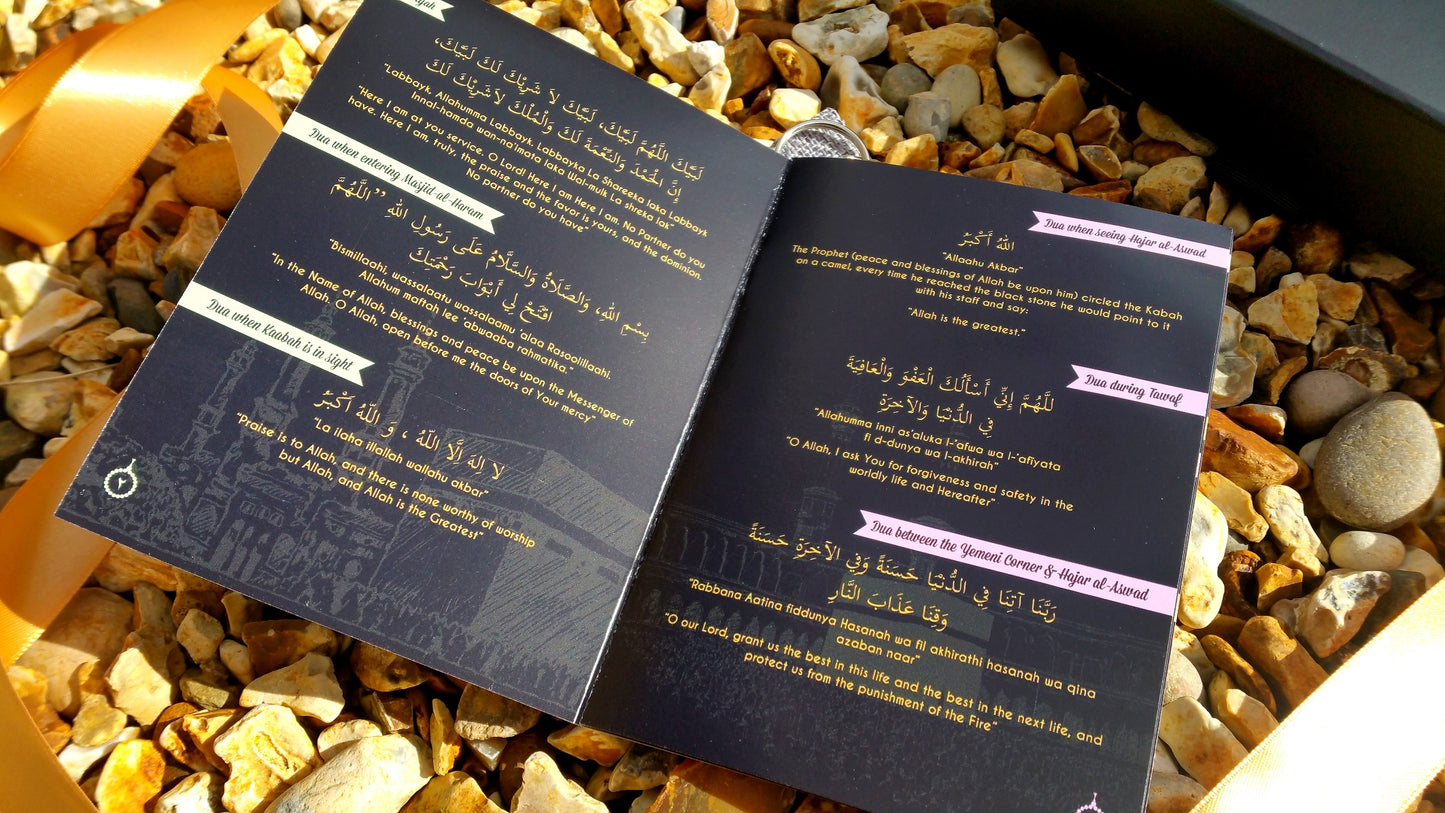 لَبَّيْكَ اللَّهُمَّ لَبَّيْكَ، لَبَّيْكَ لاَ شَرِيْكَ لَكَ لَبَّيْكَ،
إِنَّ الْحَمْدَ وَالنِّعْمَةَ لَكَ وَالْمُلْكَ لاَشَرِيْكَ لَكَ
"Labbayk. Allahumma Labbayk. Labbayka La Shareeka laka Labbayk
Innal-hamda wan-na'imata laka Wal-mulk La shreka lak"
"Here I am at you service. O Lord! Here I am Here I am. No Partner do you
have. Here I am, truly, the praise and the favor is yours, and the dominion
No partner do you have"
Dua when entering Masjid-al-Haram
بِسْمِ اللهِ، وَالصَّلَاةُ وَالسَّلَامُ عَلَى رَسُولِ اللهِ ” اللَّهُمَّ
افْتَحْ لِي أَبْوَابَ رَحْمَتِكَ
"Bismillaahi, wassalaatu wassalaamu 'alaa Rasoolillaahi.
Allahum maftah lee 'abwaaba rahmatika."
"In the Name of Allah, blessings and peace be upon the Messenger of
Allah. O Allah, open before me the doors of Your mercy"
Dua when Kaabah is in sight
لا اله اِلا اللّٰهُ ، وَ اللّٰهُ اَكْبَرُ
"La ilaha illallah wallahu akbar"
"Praise is to Allah, and there is none worthy of worship
but Allah, and Allah is the Greatest"
٢
Dua when seeing Hajar al-Aswad
اللهُ أَكْبَرُ
"Allaahu Akbar"
The Prophet (peace and blessings of Allah be upon him) circled the Kabah
on a camel, every time he reached the black stone he would point to it
with his staff and say:
"Allah is the greatest."
Dua during Tawaf
للَّهُمَّ إِنِّي أَسْأَلُكَ الْعَفْوَ وَالْعَافِيَةَ
فِي الدُّنْيَا وَالآخِرَةِ
"Allahumma inni as'aluka l-'afwa wa l-'afiyata
fi d-dunya wa l-akhirah"
"O Allah, I ask You for forgiveness and safety in the
worldly life and Hereafter"
Dua between the Yemeni Corner & Hajar al-Aswad
رَبَّنَا آتِنَا فِي الدُّنْيَا حَسَنَةً وَفِي الآخِرَةِ حَسَنَةً
وَقِنَا عَذَابَ النَّارِ
"Rabbana Aatina fiddunya Hasanah wa fil akhirathi hasanah wa qina
azaban naar"
"O our Lord, grant us the best in this life and the best in the next life, and
protect us from the punishment of the Fire"